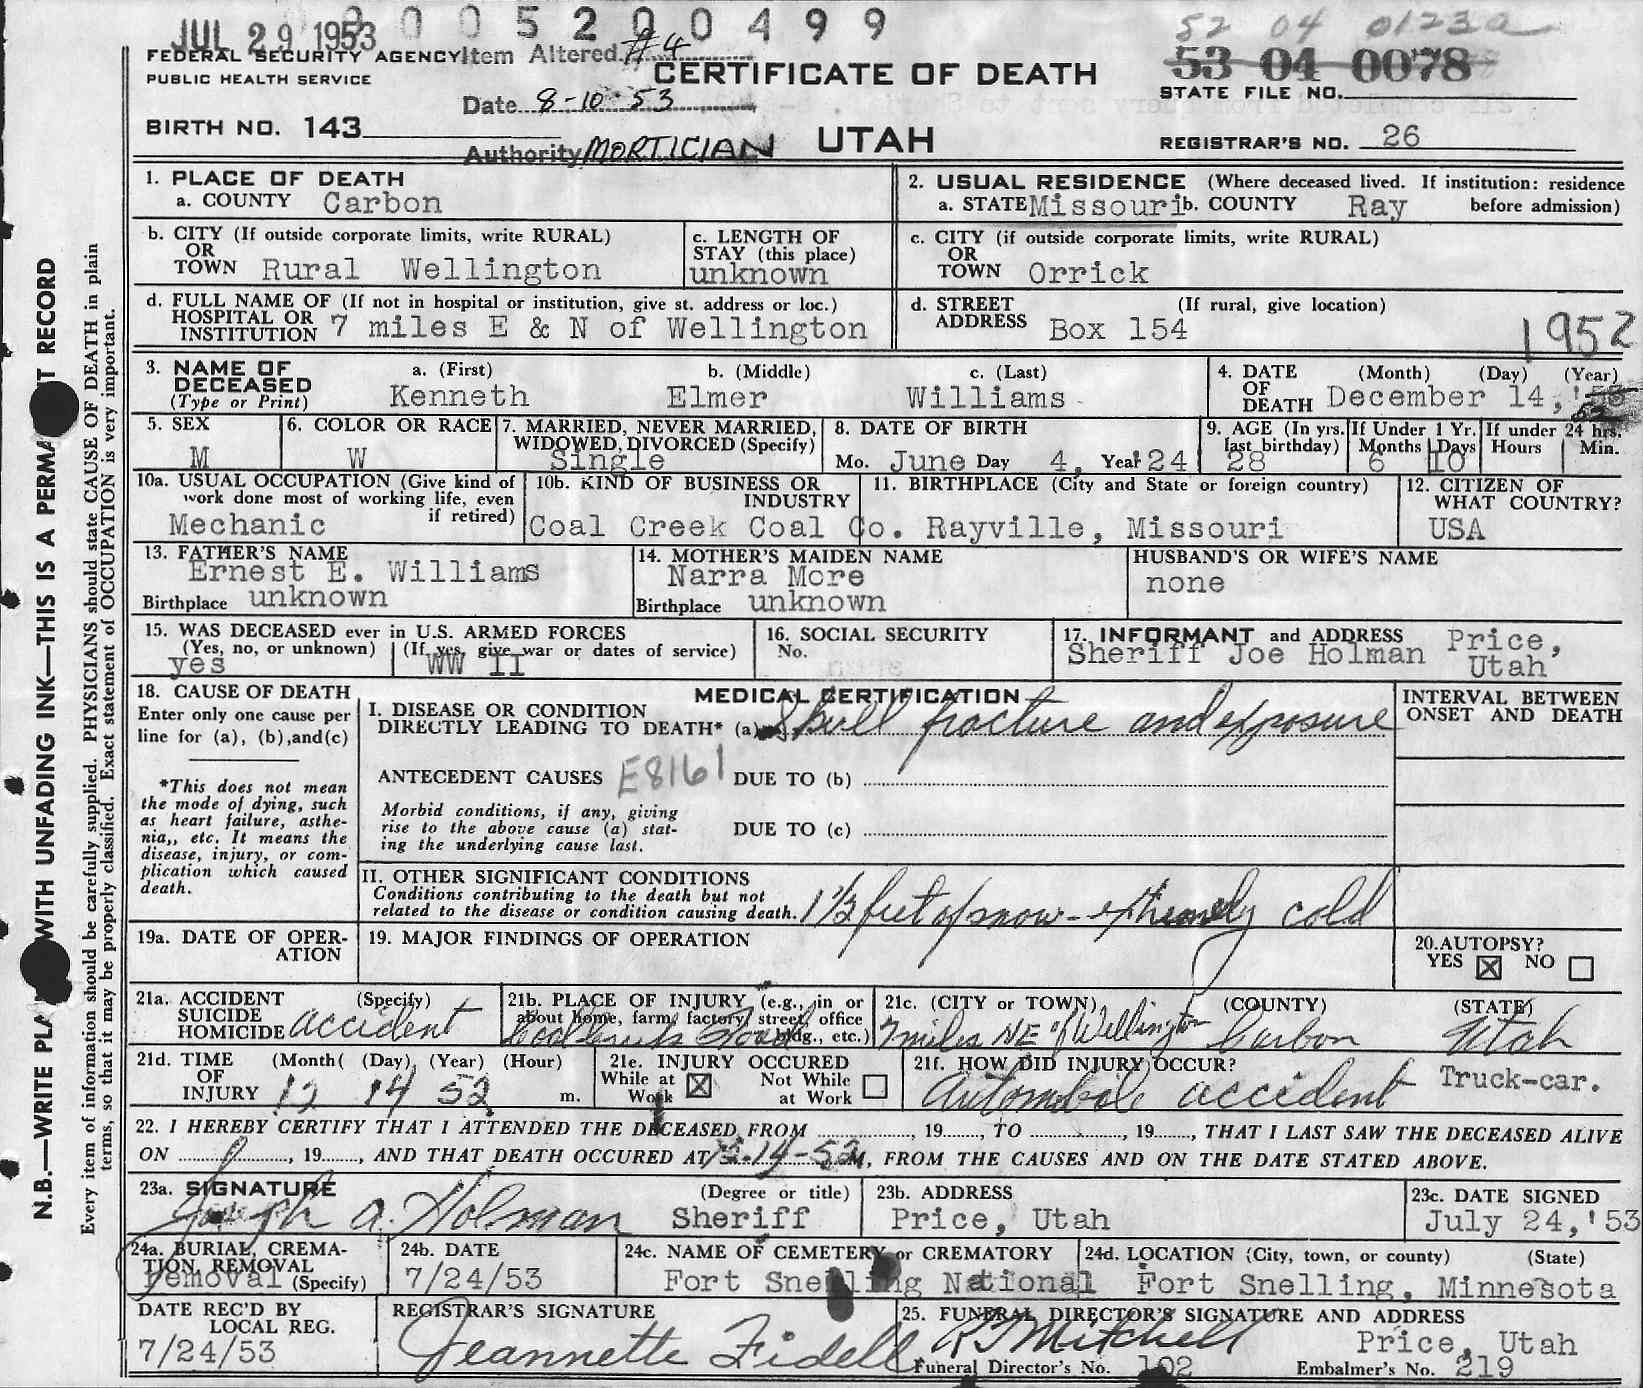 JUL 29 1953
0005200499
52 04 0123a
53 04 0078
FEDERAL SECURITY AGENCY
PUBLIC HEALTH SERVICE
Item Altered #4
Date 8-10-53
Authority MORTICIAN
CERTIFICATE OF DEATH
UTAH
STATE FILE NO.
BIRTH NO. 143
REGISTRAR'S NO. 26
N.B.—WRITE PLA WITH UNFADING INK—THIS IS A PERMA T RECORD
Every item of information should be carefully supplied. PHYSICIANS should state CAUSE OF DEATH in plain
terms, so that it may be properly classified. Exact statement of OCCUPATION is very important.
1. PLACE OF DEATH
a. COUNTY Carbon
2. USUAL RESIDENCE (Where deceased lived. If institution: residence
a. STATE Missouri b. COUNTY Ray before admission)
b. CITY (If outside corporate limits, write RURAL)
OR
TOWN Rural Wellington
c. LENGTH OF
STAY (this place)
unknown
c. CITY (if outside corporate limits, write RURAL)
OR
TOWN Orrick
d. FULL NAME OF (If not in hospital or institution, give st. address or loc.)
HOSPITAL OR
INSTITUTION 7 miles E & N of Wellington
d. STREET (If rural, give location)
ADDRESS Box 154
1952
3. NAME OF
DECEASED
(Type or Print)
a. (First) b. (Middle) c. (Last)
Kenneth Elmer Williams
4. DATE (Month) (Day) (Year)
OF
DEATH December 14, '53
52
5. SEX
M
6. COLOR OR RACE
W
7. MARRIED, NEVER MARRIED,
WIDOWED, DIVORCED (Specify)
Single
8. DATE OF BIRTH
Mo. June Day 4, Year '24
9. AGE (In yrs.
last birthday)
28
If Under 1 Yr.
Months Days
6 10
If under 24 hrs.
Hours Min.
10a. USUAL OCCUPATION (Give kind of
work done most of working life, even
if retired)
Mechanic
10b. KIND OF BUSINESS OR
INDUSTRY
Coal Creek Coal Co.
11. BIRTHPLACE (City and State or foreign country)
Rayville, Missouri
12. CITIZEN OF
WHAT COUNTRY?
USA
13. FATHER'S NAME
Ernest E. Williams
Birthplace unknown
14. MOTHER'S MAIDEN NAME
Narra More
Birthplace unknown
HUSBAND'S OR WIFE'S NAME
none
15. WAS DECEASED ever in U.S. ARMED FORCES
(Yes, no, or unknown) (If yes, give war or dates of service)
yes WW II
16. SOCIAL SECURITY
No.
17. INFORMANT and ADDRESS Price,
Sheriff Joe Holman Utah
18. CAUSE OF DEATH
Enter only one cause per
line for (a), (b), and (c)
*This does not mean
the mode of dying, such
as heart failure, asthe-
nia,, etc. It means the
disease, injury, or com-
plication which caused
death.
MEDICAL CERTIFICATION
I. DISEASE OR CONDITION
DIRECTLY LEADING TO DEATH* (a) Skull fracture and exposure
ANTECEDENT CAUSES E8161 DUE TO (b)
Morbid conditions, if any, giving
rise to the above cause (a) stat-
ing the underlying cause last.
DUE TO (c)
INTERVAL BETWEEN
ONSET AND DEATH
II. OTHER SIGNIFICANT CONDITIONS
Conditions contributing to the death but not
related to the disease or condition causing death. 1 1/2 feet of snow - extremely cold
19a. DATE OF OPER-
ATION
19. MAJOR FINDINGS OF OPERATION
20. AUTOPSY?
YES ☒ NO ☐
21a. ACCIDENT (Specify)
SUICIDE
HOMICIDE accident
21b. PLACE OF INJURY (e.g., in or
about home, farm, factory, street, office
bldg., etc.)
21c. (CITY or TOWN) (COUNTY) (STATE)
7 miles NE of Wellington Carbon Utah
21d. TIME (Month) (Day), (Year) (Hour)
OF
INJURY 12 14 52 m.
21e. INJURY OCCURED
While at Work ☒ Not While at Work ☐
21f. HOW DID INJURY OCCUR?
Automobile accident Truck-car.
22. I HEREBY CERTIFY THAT I ATTENDED THE DECEASED FROM , 19 , TO , 19 , THAT I LAST SAW THE DECEASED ALIVE
ON , 19 , AND THAT DEATH OCCURED AT 12-14-52 M., FROM THE CAUSES AND ON THE DATE STATED ABOVE.
23a. SIGNATURE (Degree or title)
Joseph A. Holman Sheriff
23b. ADDRESS
Price, Utah
23c. DATE SIGNED
July 24, '53
24a. BURIAL, CREMA-
TION, REMOVAL
removal (Specify)
24b. DATE
7/24/53
24c. NAME OF CEMETERY or CREMATORY
Fort Snelling National
24d. LOCATION (City, town, or county) (State)
Fort Snelling, Minnesota
DATE REC'D BY
LOCAL REG.
7/24/53
REGISTRAR'S SIGNATURE
Jeannette Fidell
25. FUNERAL DIRECTOR'S SIGNATURE AND ADDRESS
Mitchell Price, Utah
Funeral Director's No. 102 Embalmer's No. 219